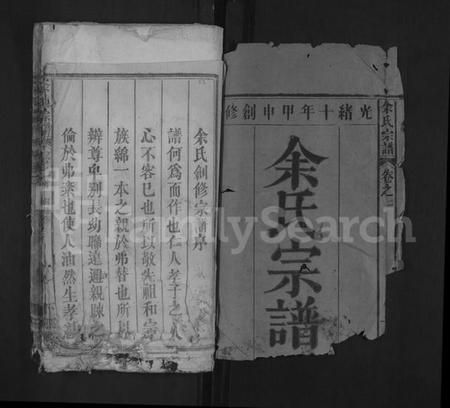 光緒十年甲申創修
余氏宗譜
余氏宗譜
卷之
余氏創修宗譜序
譜何爲而作也仁人孝子之人
心不容已也所以敬先祖和宗
族綿一本之親於弗替也所以
辨尊卑別長幼聯遠邇親疎之
倫於弗紊也使人油然生孝
FamilySearch